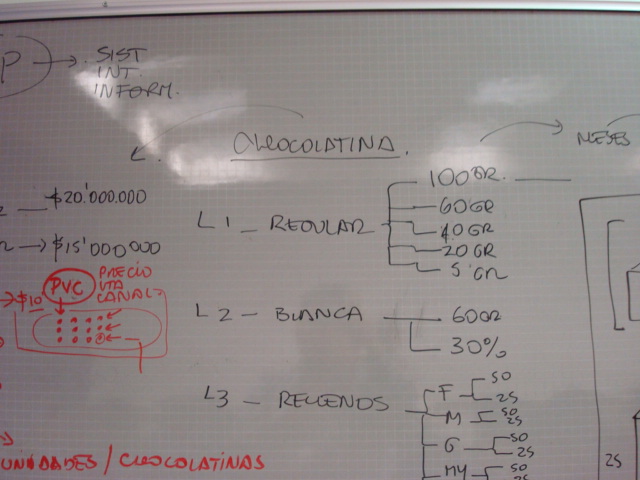 P → SIST
INT.
INFORM.
CHOCOLATINA.
MESES
$20'000.000
$15'000000
$10
PVC
PRECIO
VTA
CANAL
L1 - REGULAR
100GR.
60GR
40GR
20GR
5 GR
L2 - BLANCA
60GR
30%
L3 - RELLENOS
F 50
25
M 50
25
G 50
25
MY 50
25
25
UNIDADES / CHOCOLATINAS